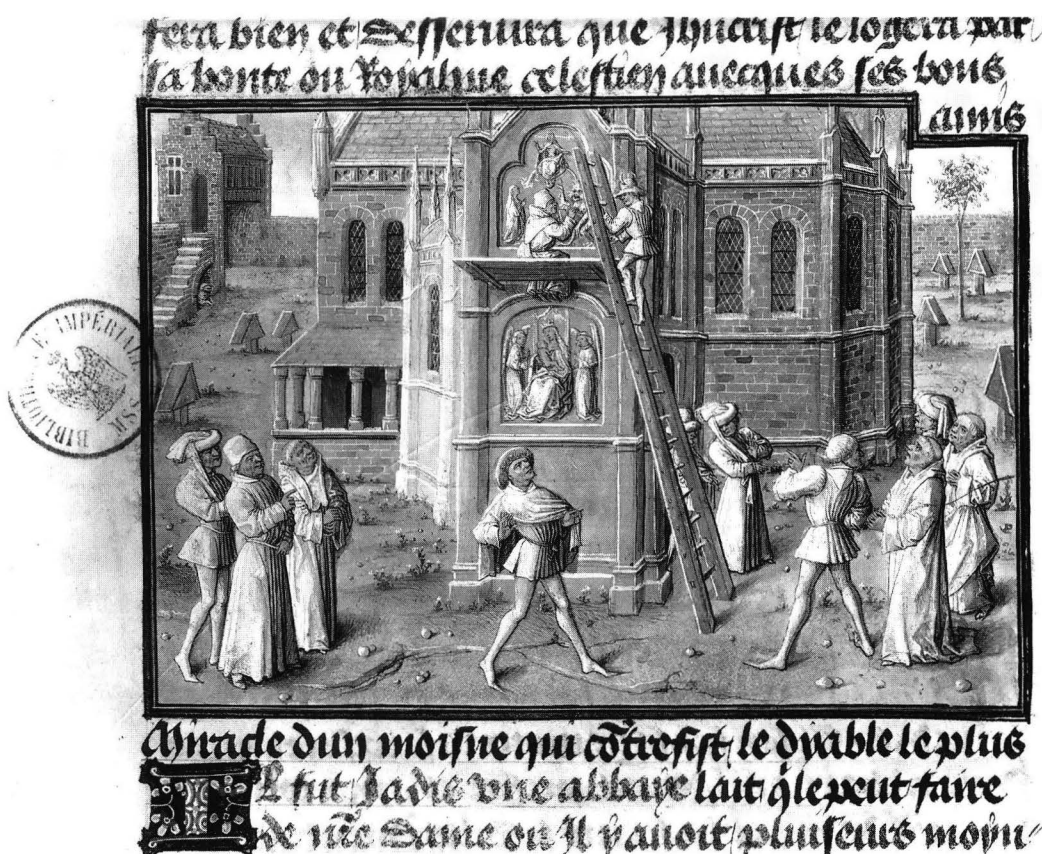 fera bien et desseruira que Jhucrist le logera par
sa bonte ou Royalme celestien auecques ses bons
amis
BIBLIOTH E IMPÉRIALE
Miracle dun moisne qui cõtrefist le dyable le plus
IL fut Jadis vne abbaye lait q̃le peut faire
de nr̃e dame ou Jl y auoit pluiseurs moyn